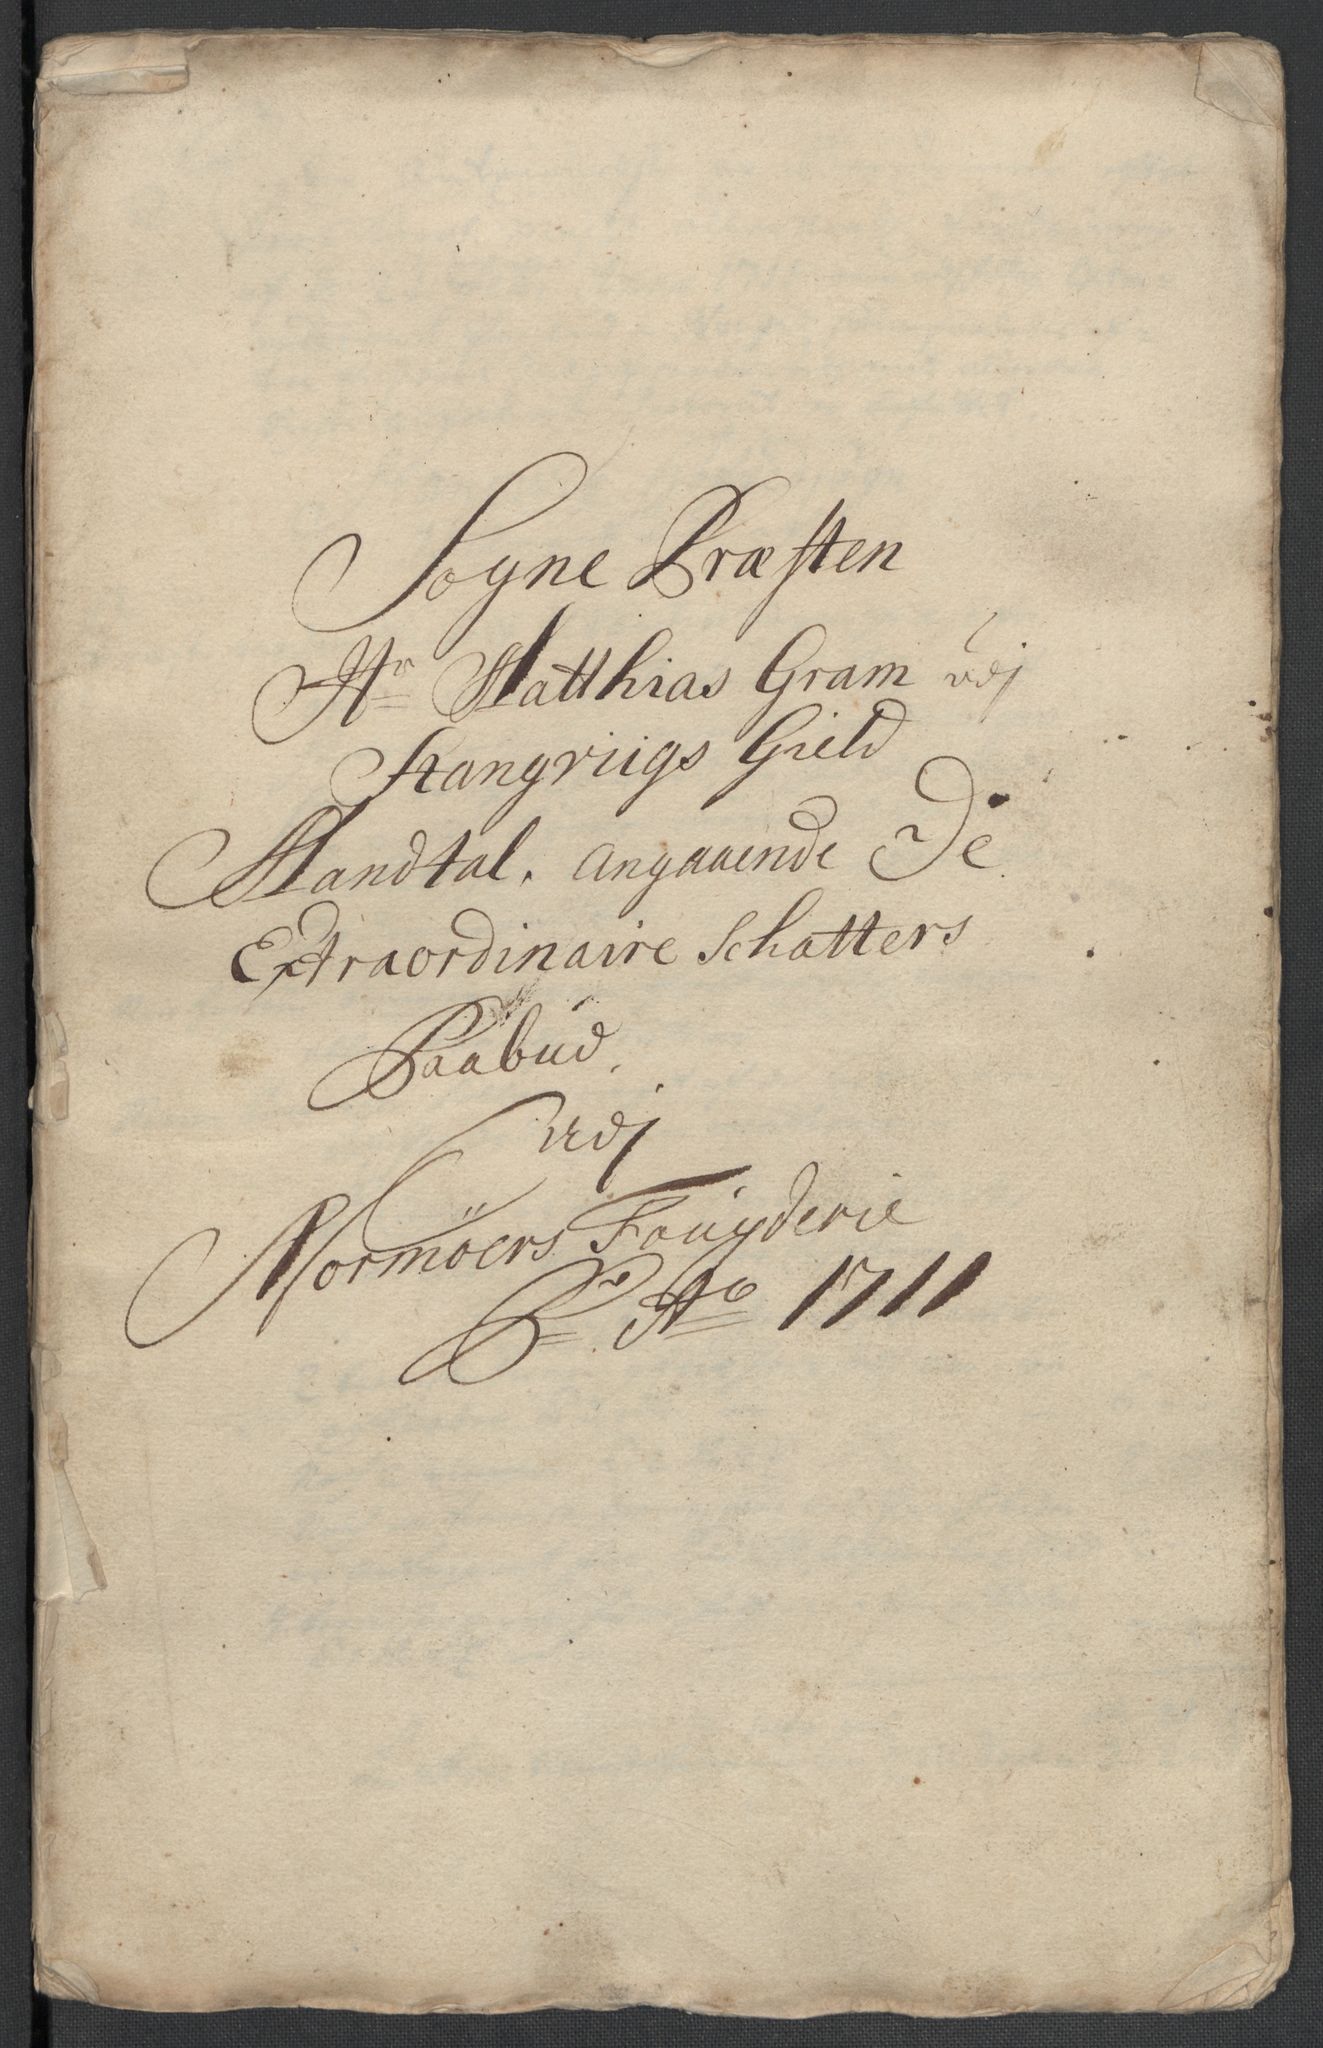 Sogne Præsten
Hr Matthias Gram udj
Stangviigs Gield
Mandtal. angaaende De
Extraordinaire Schatters
Paabud.
udj
Normöers Fougderie
Pr Ao 1711